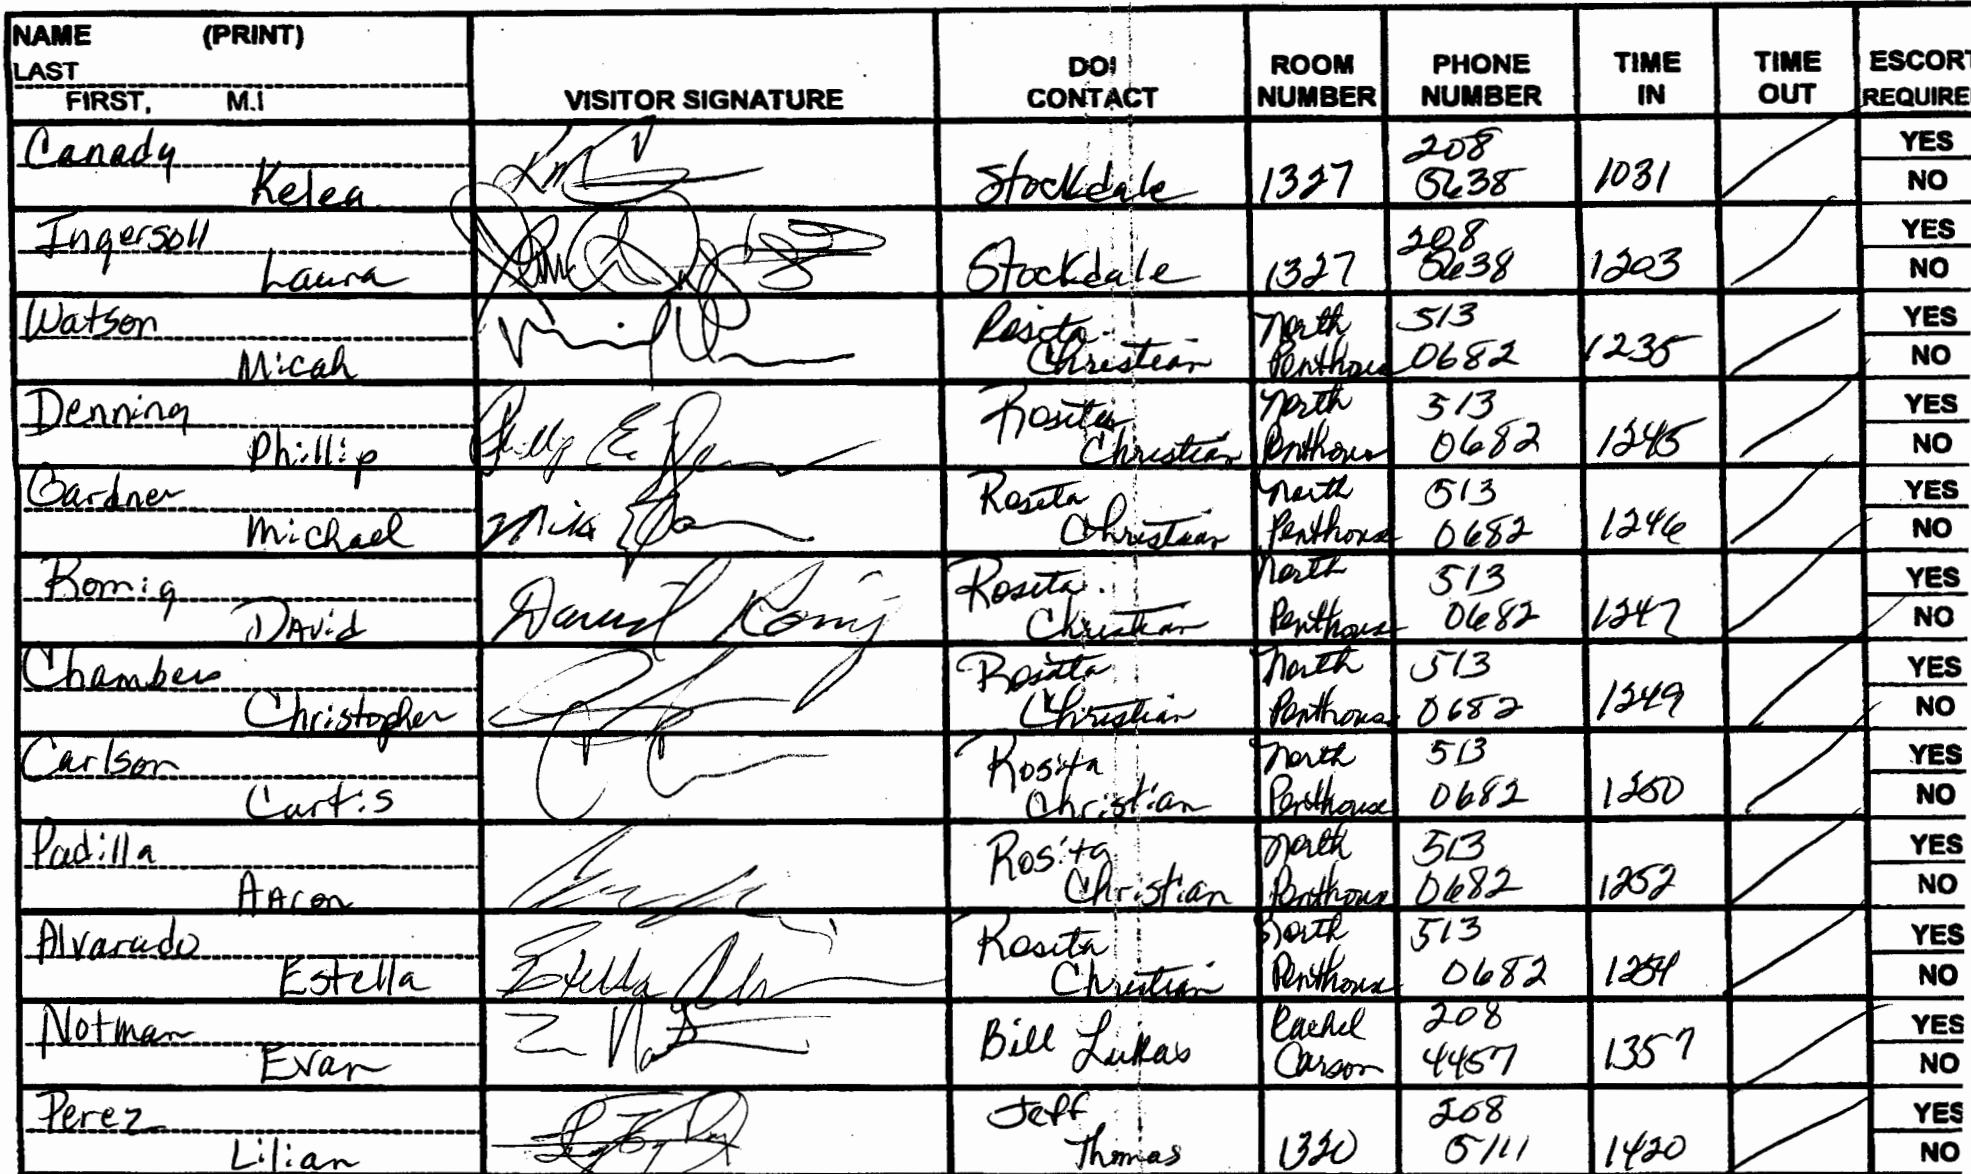 NAME (PRINT)
LAST
FIRST, M.I
VISITOR SIGNATURE
DOI CONTACT
ROOM NUMBER
PHONE NUMBER
TIME IN
TIME OUT
ESCORT REQUIRE
Canady Kelea Stockdale 1327 208 0638 1031 YES NO
Ingersoll Laura Stockdale 1327 208 0638 1203 YES NO
Watson Micah Rosita Christian North Penthouse 513 0682 1235 YES NO
Denning Phillip Rosita Christian North Penthouse 513 0682 1245 YES NO
Gardner Michael Rosita Christian North Penthouse 513 0682 1246 YES NO
Romig David David Romig Rosita Christian North Penthouse 513 0682 1247 YES NO
Chambers Christopher Rosita Christian North Penthouse 513 0682 1249 YES NO
Carlson Curtis Rosita Christian North Penthouse 513 0682 1250 YES NO
Padilla Aaron Rosita Christian North Penthouse 513 0682 1252 YES NO
Alvarado Estella Estella Rosita Christian North Penthouse 513 0682 1254 YES NO
Notman Evan Bill Lukas Rachel Carson 208 4457 1357 YES NO
Perez Lilian Jeff Thomas 1320 208 5111 1420 YES NO